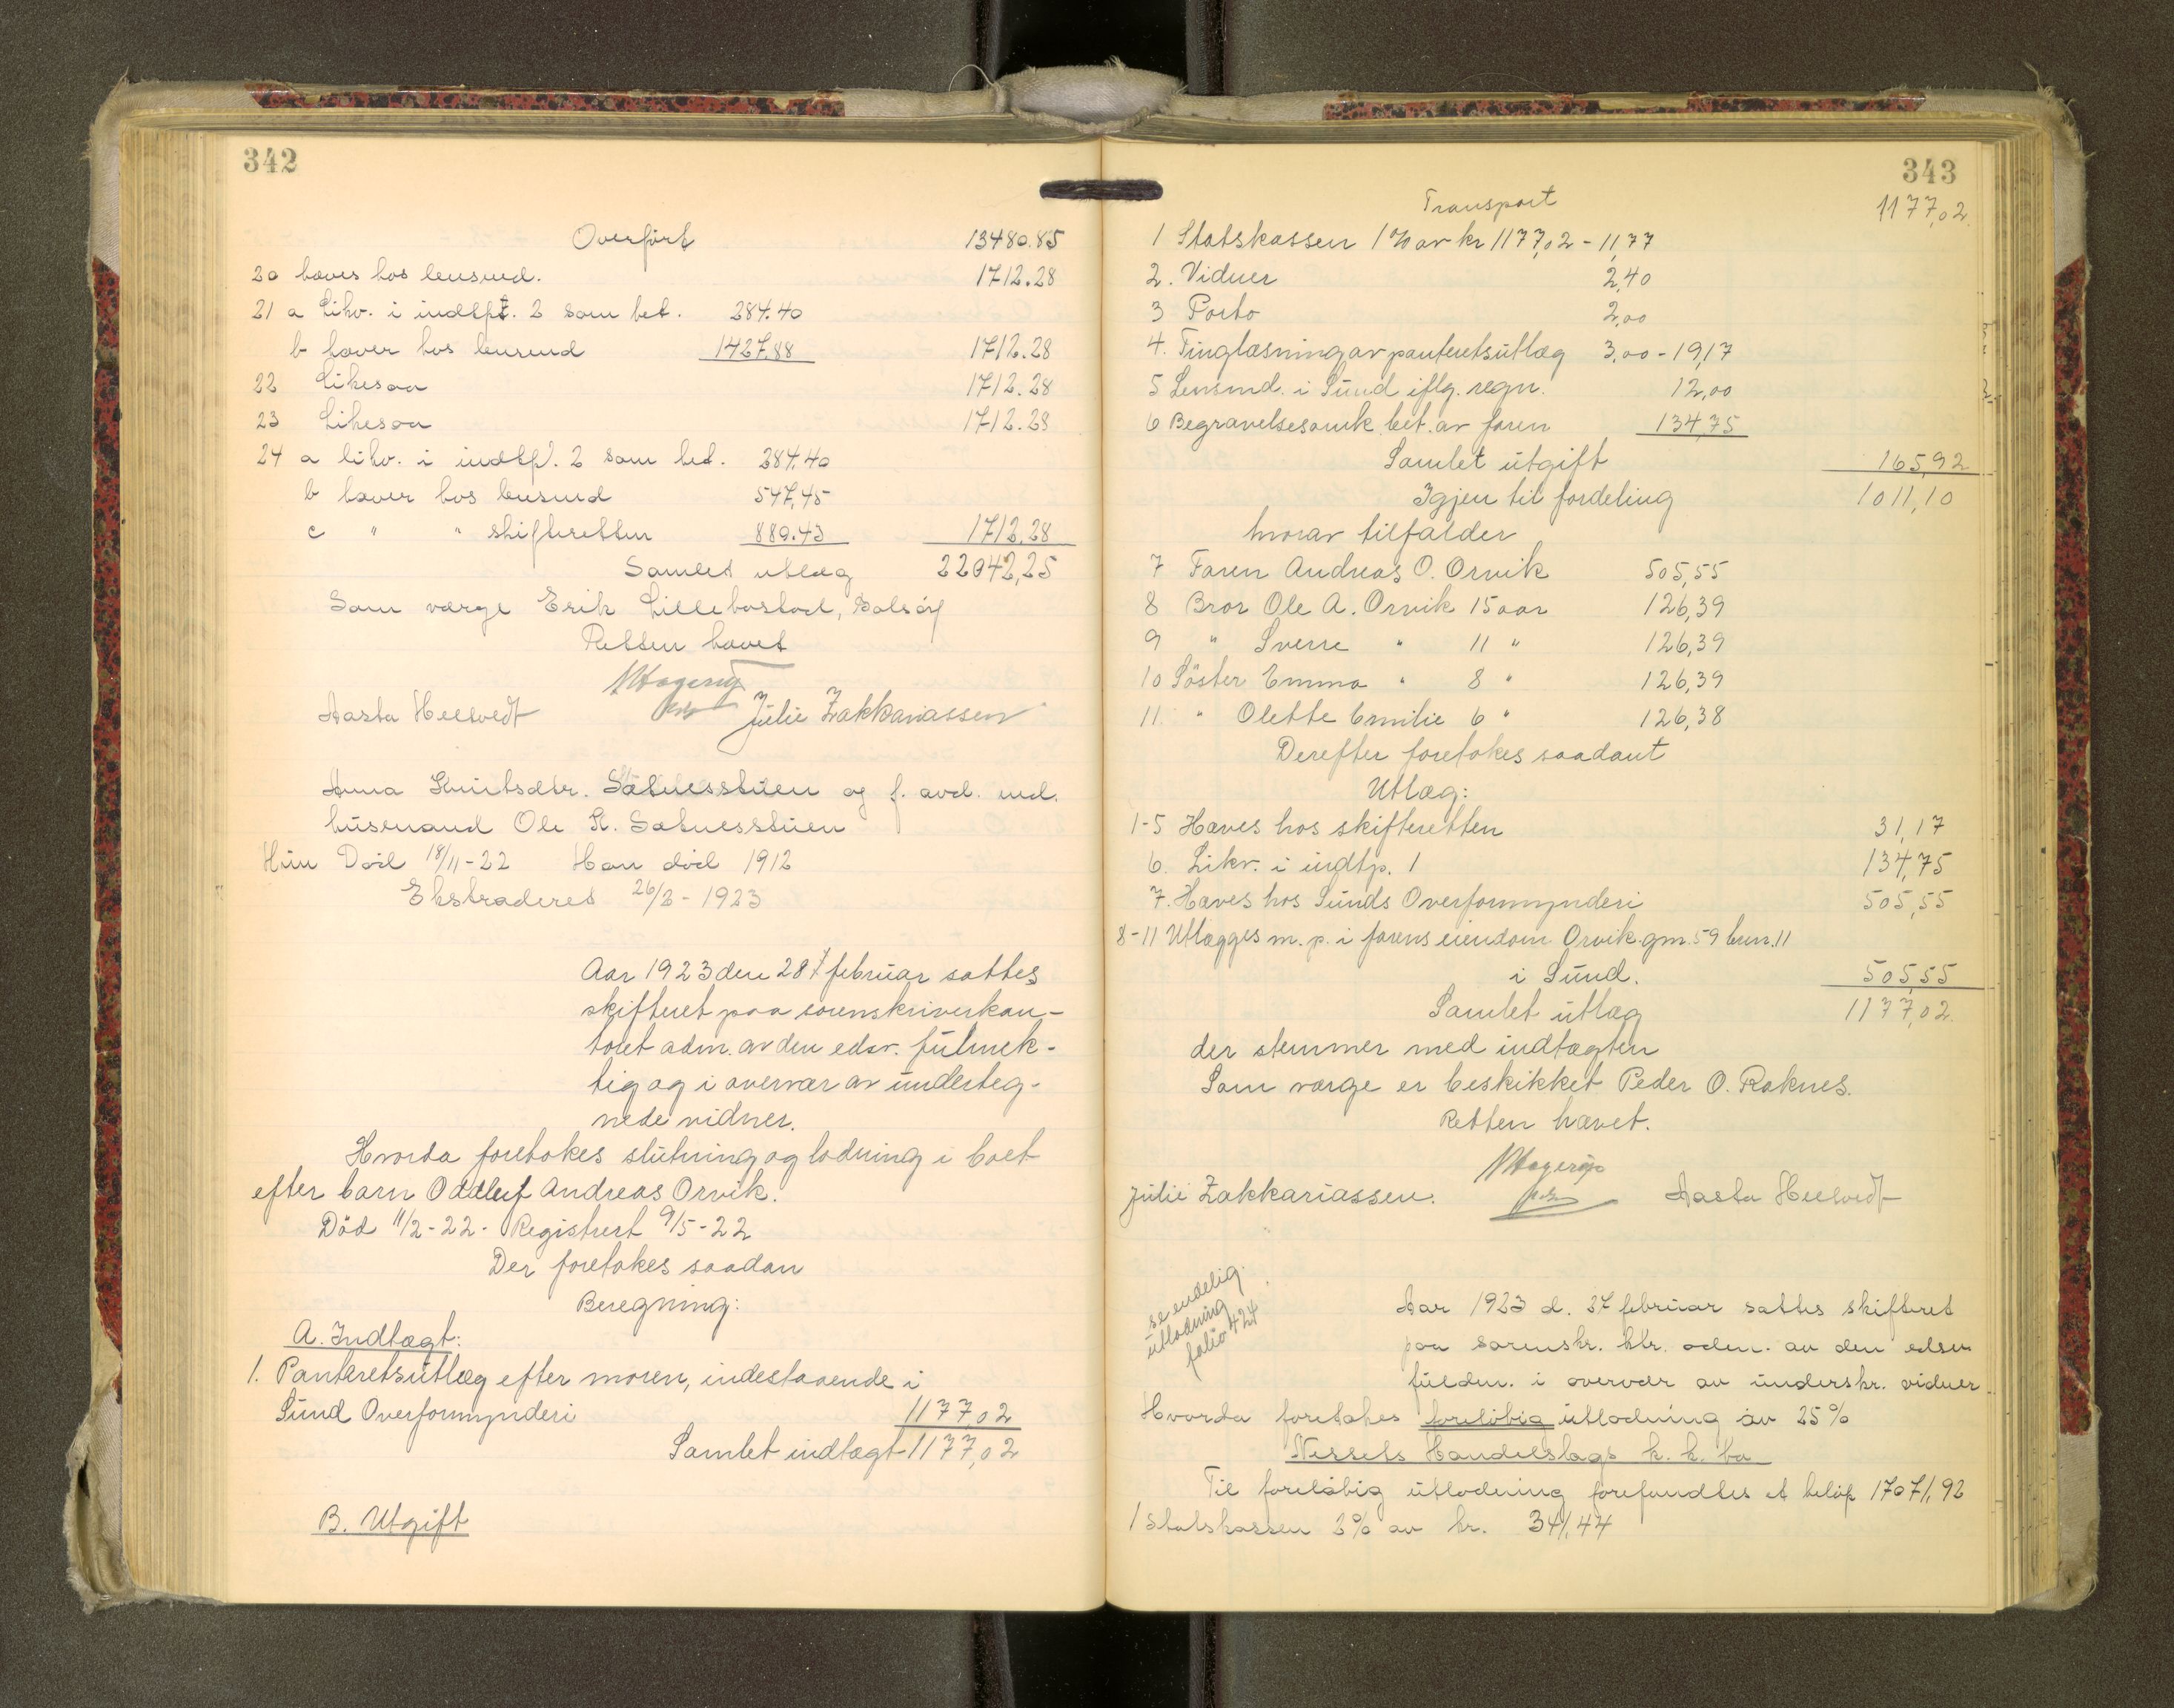 342
Overført 13480.85
20 hæves hos lensmd. 1712.28
21 a Likv. i indtpt. 2 som bet. 284.40
b hæver hos lensmd 1427.88 1712.28
22 Likesaa 1712.28
23 Likesaa 1712.28
24 a likv. i indtpt. 2 som bet. 284.40
b hæver hos lensmd 547,45
c " " skifteretten 880.43 1712.28
Samlet utlæg 22042,25
Som værge Erik Lillebostad, Bolsöy
Retten hævet
Aasta Heltvedt Julie Zakkariassen
Anna Knutsdtr. Sætnesstuen og f. avd. md.
husmand Ole K. Sætnesstuen
Hun Död 18/11-22 Han död 1912
Ekstraderes 26/2-1923
Aar 1923 den 28/ februar sattes
skifteret paa sorenskriverkon-
toret adm. av den edsv. fulmek-
tig og i overvær av underteg-
nede vidner.
Hvorda foretokes slutning og lodning i boet
efter barn Oddleif Andreas Orvik.
Död 11/2-22. Registrert 9/5-22
Der foretokes saadan
Beregning:
A. Indtægt:
1. Panteretsutlæg efter moren, indestaaende i
Sund Overformynderi 1177,02
Samlet indtægt 1177,02
B. Utgift
343
Transport 1177,02
1 Statskassen 1% av kr 1177,02 - 11,77
2. Vidner 2,40
3 Porto 2,00
4. Tinglæsning av panteretsutlæg 3,00 - 19,17
5 Lensmd. i Sund iflg. regn. 12,00
6 Begravelsesomk. bet. av faren 134,75
Samlet utgift 165,92
Igjen til fordeling 1011,10
hvorav tilfalder
7 Faren Andreas O. Orvik 505,55
8 Bror Ole A. Orvik 15 aar 126,39
9 " Sverre " 11 " 126,39
10 Söster Emma " 8 " 126,39
11 " Olette Emilie 6 " 126,38
Derefter foretokes saadant
Utlæg:
1-5 Hæves hos skifteretten 31,17
6. Likv. i indtp. 1 134,75
7. Hæves hos Sunds Overformynderi 505,55
8-11 Utlægges m. p. i farens eiendom Orvik gm. 59 brm. 11
i Sund. 505,55
Samlet utlæg 1177,02.
der stemmer med indtægten
Som værge er beskikket Peder O. Raknes.
Retten hævet.
Julie Zakkariassen. Aasta Heltvedt
se endelig
utlodning
folio 424
Aar 1923 d. 27 februar sattes skifteret
paa sorenskr. ktr. adm. av den edsv.
fuldm. i overvær av underskr. vidner
Hvorda foretokes foreløbig utlodning av 25%
Nessets Handelslags k. k. bo
Til foreløbig utlodning forefandtes et beløp 17071,92
1 Statskassen 2% av kr. 341,44